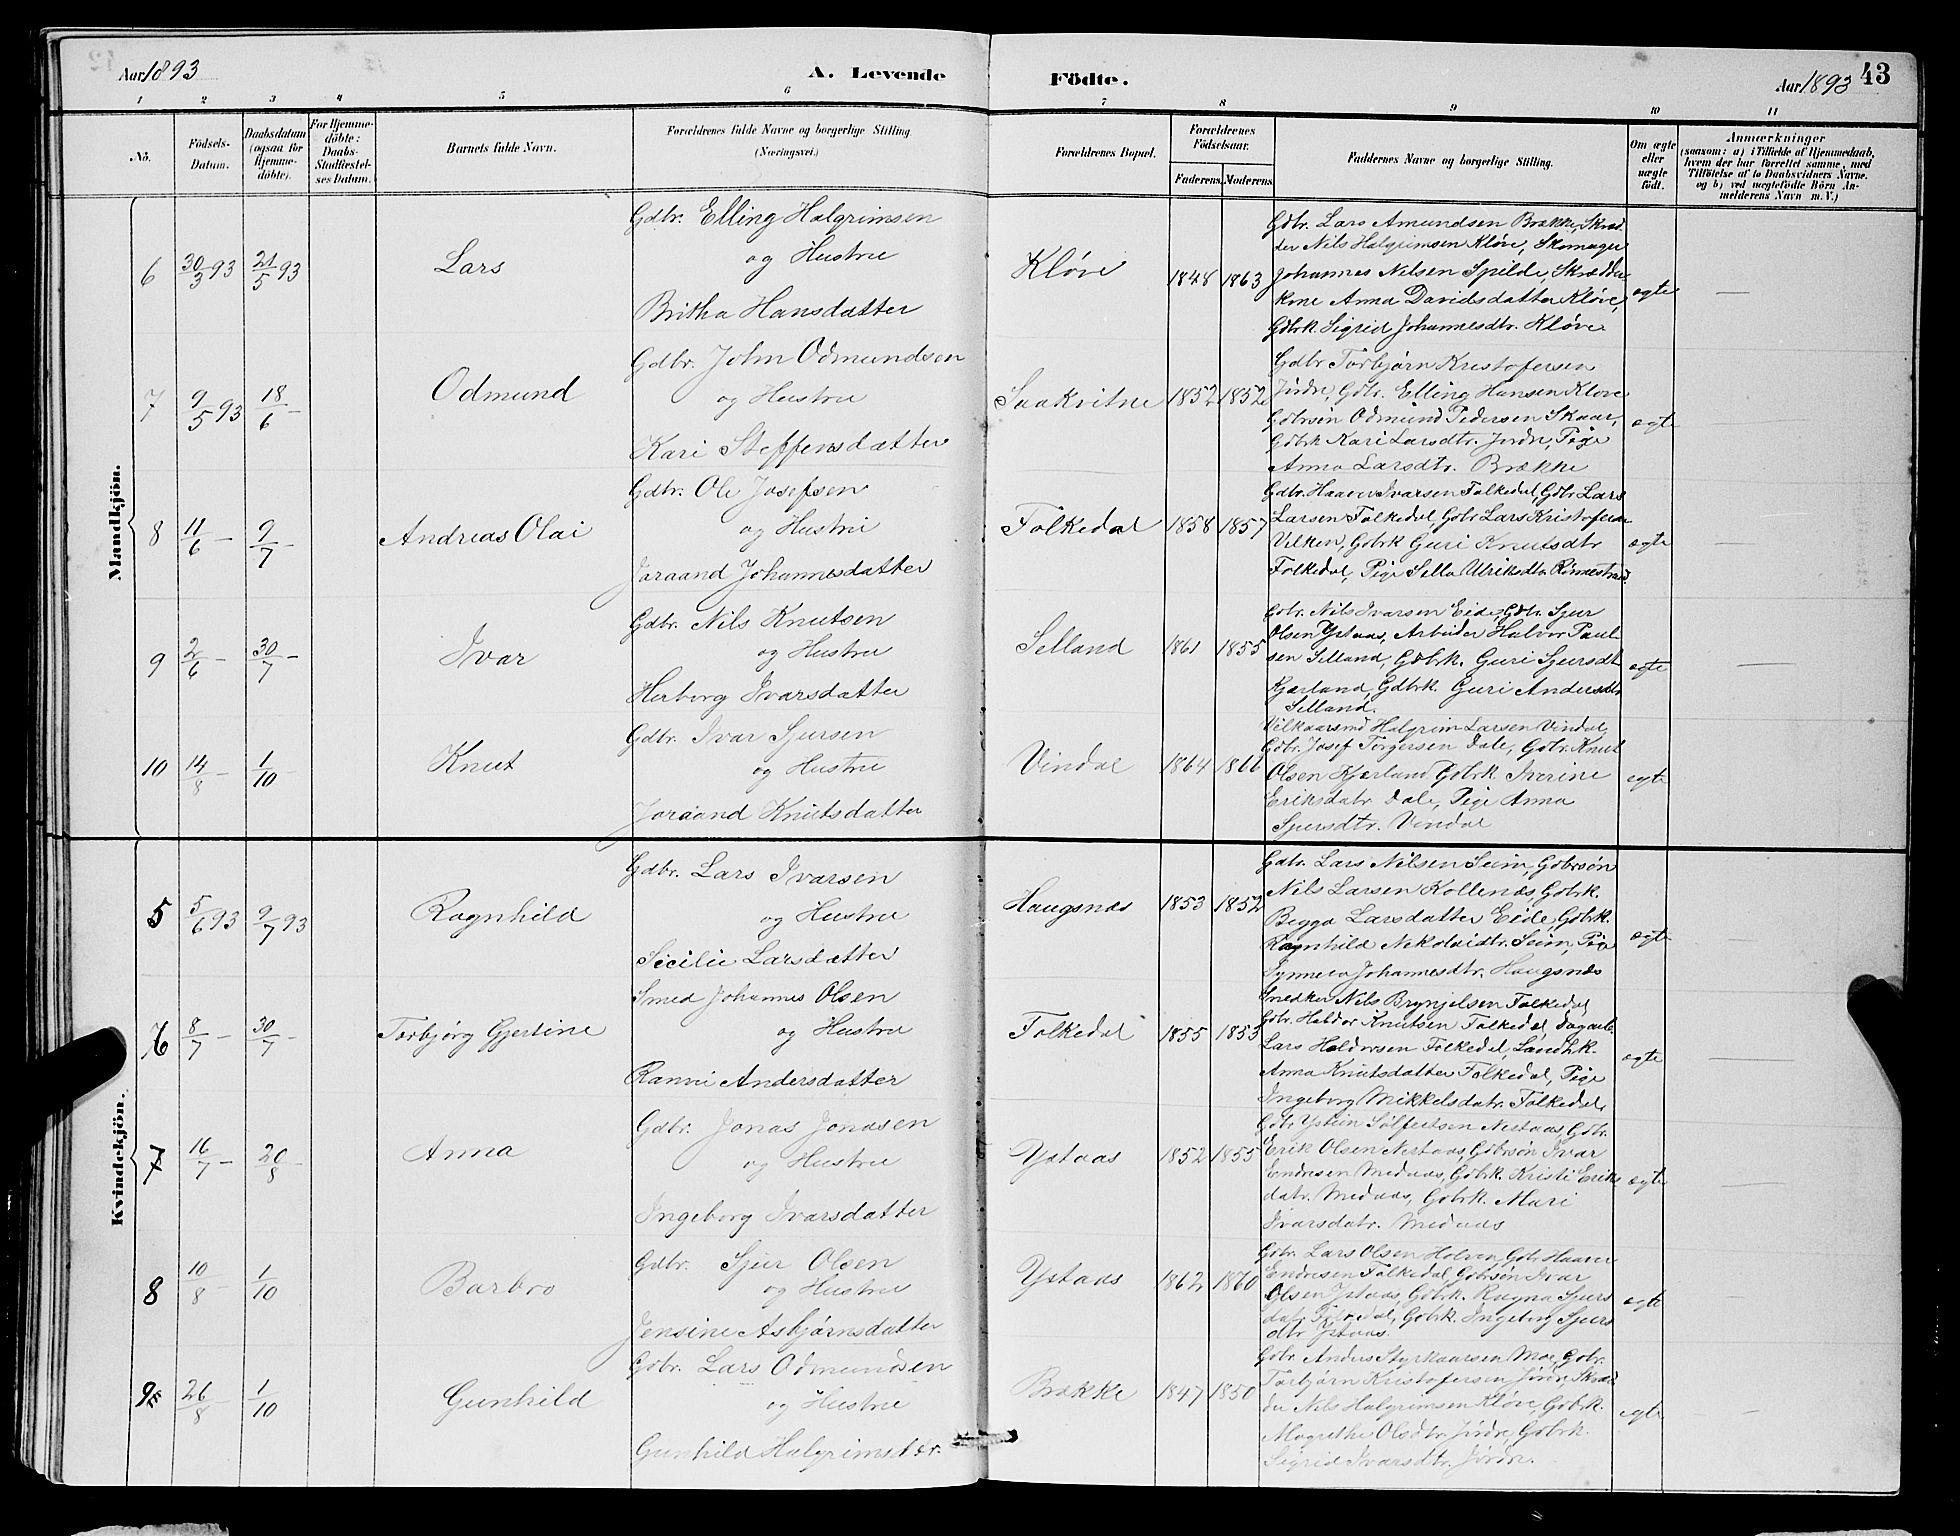 Aar 1893
A. Levende Födte.
Aar 1893
43
1 2 3 4 5 6 7 8 9 10 11
Nö.
Födsels-
Datum.
Daabsdatum
(ogsaa for
Hjemme-
döbte).
For Hjemme-
döbte:
Daabs-
Stadfæstel-
ses Datum.
Barnets fulde Navn.
Forældrenes fulde Navne og borgerlige Stilling.
(Næringsvei.)
Forældrenes Bopæl.
Forældrenes
Födselsaar.
Faderens. Moderens.
Faddernes Navne og borgerlige Stilling.
Om ægte
eller
uægte
födt.
Anmærkninger
(saasom: a) i Tilfælde af Hjemmedaab,
hvem der har forrettet samme, med
Tilföielse af to Daabsvidners Navne.
og b) ved uægtefödte Börn An-
melderens Navn m. V.)
Mandkjön.
6 30/3 93 21/5 93 Lars
Gdbr. Elling Halgrimsen
og Hustru
Britha Hansdatter
Kløve 1848 1863
Gdbr. Lars Amundsen Brække, Skræd-
der Nils Halgrimsen Kløve, Skomager
Johannes Nilsen Spilde, Skrædder
kone Anna Davidsdatter Kløve,
Gdbrk. Sigrid Johannesdtr. Kløve
ægte —
7 9/5 93 18/6 — Odmund
Gdbr. John Odmundsen
og Hustru
Kari Steffensdatter
Saakvitne 1852 1852
Gdbr Torbjørn Kristofersen
Jørdre, Gdbr. Elling Hansen Kløve
Gdbrsøn Odmund Pedersen Skaar,
Gdbrk Kari Larsdtr. Jordr, Pige
Anna Larsdtr. Brække
ægte —
8 11/6 — 9/7 — Andreas Olai
Gdbr. Ole Josefsen
og Hustru
Joraand Johannesdatter
Folkedal 1858 1857
Gdbr. Haaver Ivarsen Folkedal, Gdbr Lars
Larsen Folkedal, Gdbr Lars Kristofersen
Vilken, Gdbrk Guri Knutsdtr
Folkedal, Pige Sella Ulriksdtr.
ægte —
9 2/6 — 30/7 — Ivar
Gdbr. Nils Knutsen
og Hustru
Herborg Ivarsdatter
Selland 1861 1855
Gdbr. Nils Ivarsen Eide, Gdbr. Sjur
Olsen Ystaas, Arbeider Halvor Paul-
sen Selland, Gdbrk. Guri Sjursdtr
Kjærland, Gdbrk. Guri Andersdtr
Selland.
ægte —
10 14/8 — 1/10 — Knut
Gdbr. Ivar Sjursen
og Hustru
Joraand Knutsdatter
Vindal 1864 1866
Vilkaarsmd Halgrim Larsen Vindal,
Gdbr. Josef Torgersen Dale, Gdbr. Knut
Olsen Kjærland Gdbrk Iverine
Eriksdatr. Dale, Pige Anna
Sjursdtr. Vindal
ægte
Kvindekjön.
5 5/6 93 9/7 93 Ragnhild
Gdbr. Lars Ivarsen
og Hustru
Sicilie Larsdatter
Haugsnæs 1853 1852
Gdbr. Lars Nilsen Seim, Gdbrsøn
Nils Larsen Kollenæs, Gdbrk.
Bygga Larsdatter Eide, Gdbrk.
Ragnhild Nikolaidtr. Seim, Pige
Synneva Johannesdtr. Haugsnæs
ægte —
6 8/7 — 30/7 — Torbjørg Gjertine
Smed Johannes Olsen
og Hustru
Ranvei Andersdatter
Folkedal 1855 1853
Snedker Nils Brynjelsen Folkedal,
Gdbr. Haldor Knutsen Folkedal, Dagarb.
Lars Haldorsen Folkedal, Landhk.
Anna Knutsdatter Folkedal, Pige
Ingeborg Mikkelsdatr. Folkedal.
ægte —
7 16/7 — 20/8 Anna
Gdbr. Jonas Jonasen
og Hustru
Ingeborg Ivarsdatter
Ystaas 1852 1855
Gdbr Ystein Sølfestsen Nestaas, Gdbr.
Erik Olsen Nestaas, Gdbrsøn Ivar
Endresen Medaas, Gdbrk. Kristi Eriks
datr. Medaas, Gdbrk. Mari
Ivarsdatr. Medaas
ægte —
8 10/8 1/10 Barbro
Gdbr. Sjur Olsen
og Hustru
Jensine Asbjørnsdatter
Ystaas 1862 1870
Gdbr. Lars Olsen Holven, Gdbr Haaver
Endresen Folkedal, Gdbrsøn Ivar
Olsen Ystaas, Gdbrk. Ragna Sjurs
datr. Folkedal, Gdbrk. Ingeborg Sjurs
dtr Ystaas.
ægte —
9 26/8 1/10 Gunhild
Gdbr. Lars Odmundsen
og Hustru
Gunhild Halgrimsdtr.
Brække 1847 1850
Gdbr. Anders Styrkaarsen Moe, Gdbr.
Torbjørn Kristofersen Jørdre, Skræd
der Nils Halgrimsen Kløve, Gdbrk.
Magrethe Olsdtr. Jørdre, Gdbrk.
Sigrid Ivarsdtr. Jørdre.
ægte —